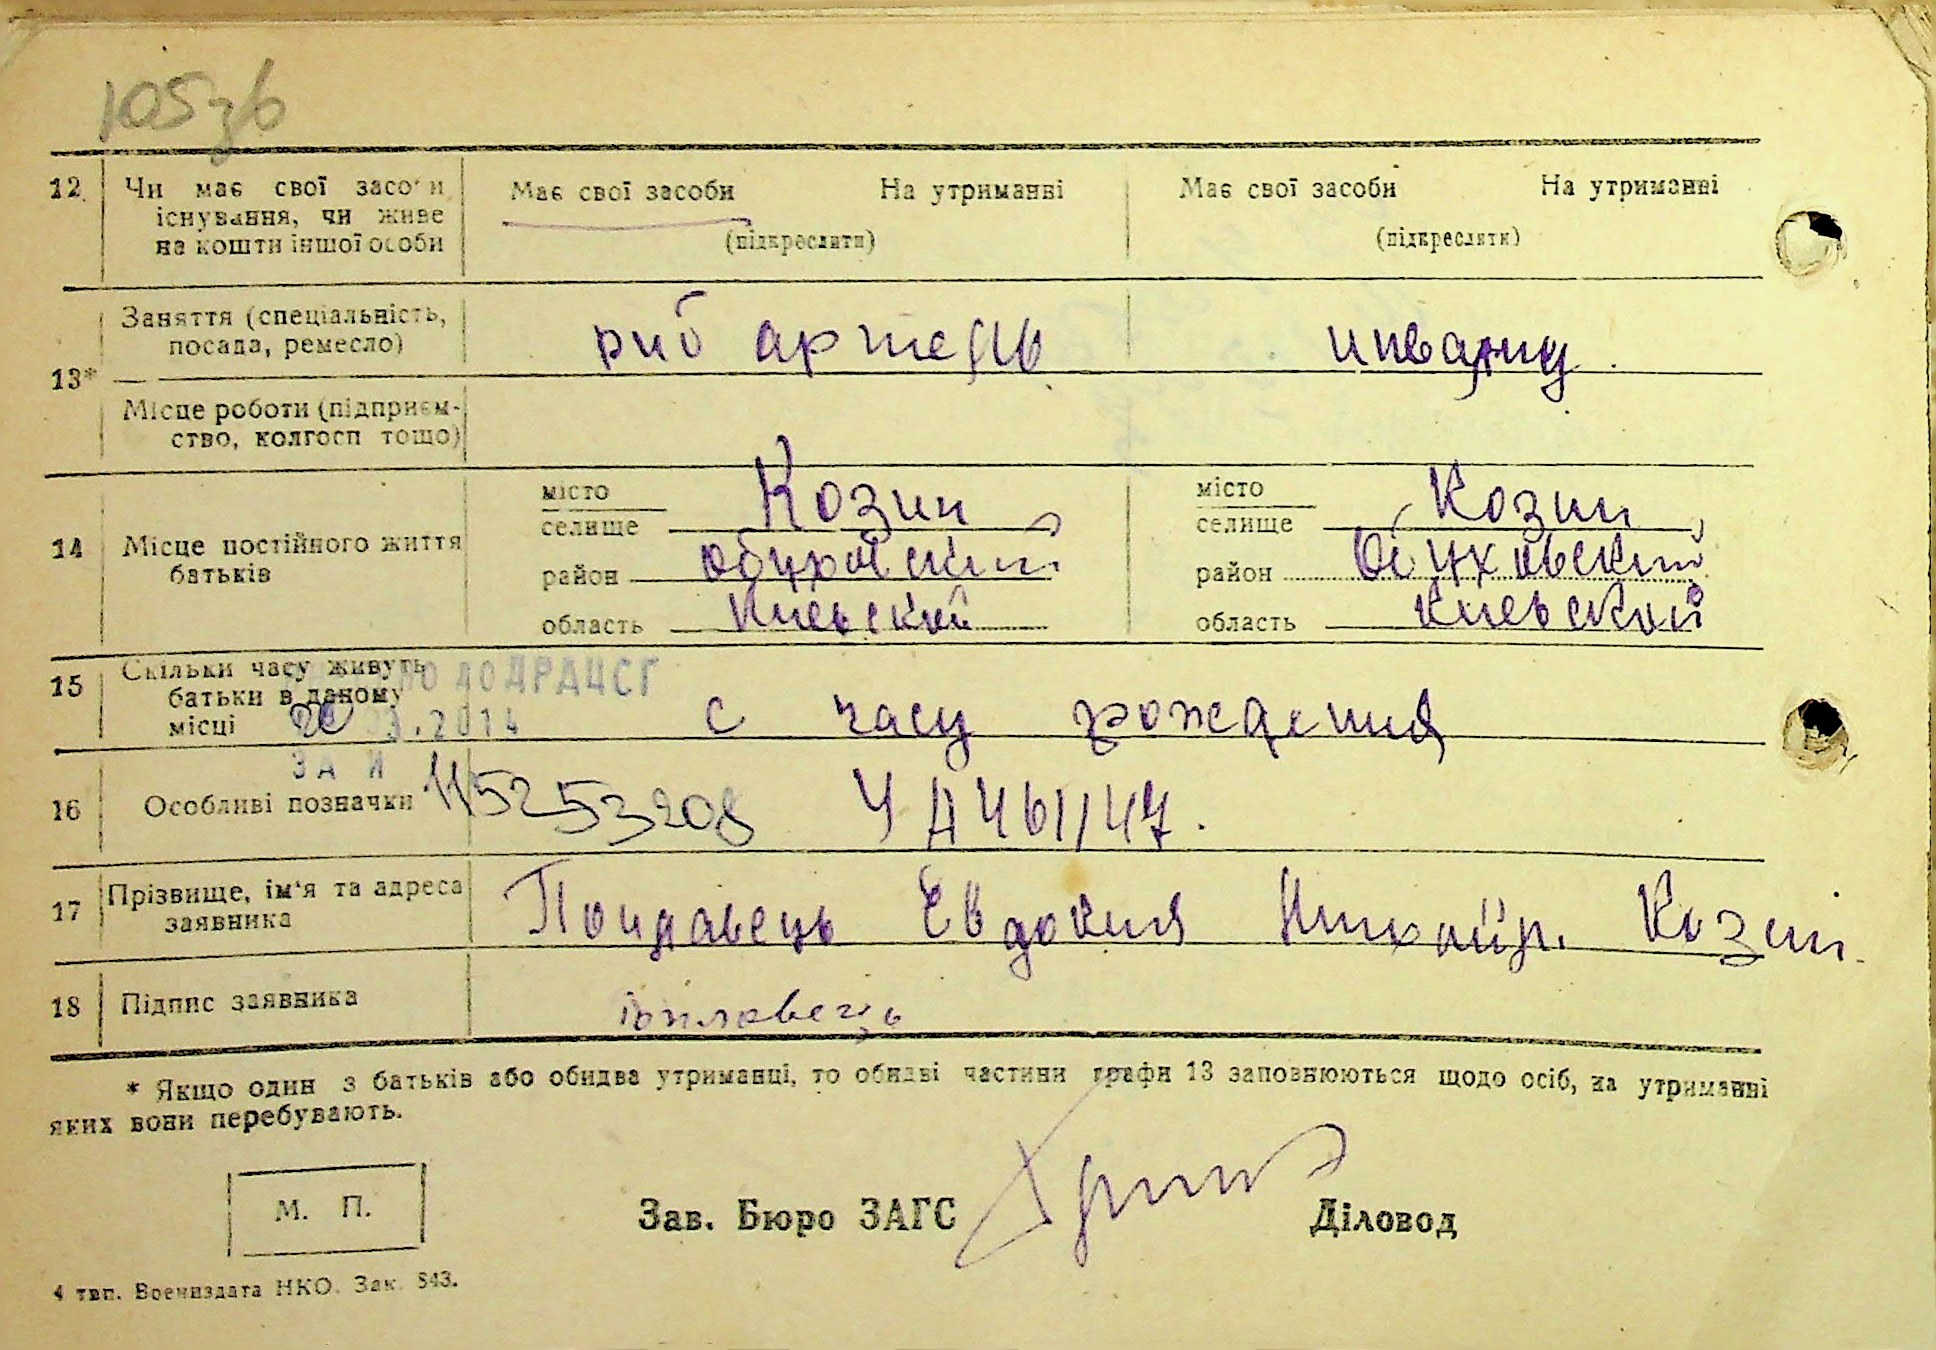 105зв
12 Чи має свої засоби Має свої засоби На утриманні Має свої засоби На утриманні
існування, чи живе
на кошти іншої особи (підкреслити) (підкреслити)
Заняття (спеціальність,
посада, ремесло) риб артель инвалид.
13*
Місце роботи (підприєм-
ство, колгосп тощо)
місто Козин місто Козин
селище селище
14 Місце постійного життя район Обуховский район Обуховский
батьків
область Киевской область Киевской
15 Скільки часу живуть
батьки в даному
місці с часу рождения
ДО ДРАЦСГ
.2014
ЗА
16 Особливі позначки 115253208 Ч Д 461/47.
17 Прізвище, ім'я та адреса
заявника Евдокия Козин
18 Підпис заявника
* Якщо один з батьків або обидва утриманці, то обидві частини графи 13 заповнюються щодо осіб, на утриманні
яких вони перебувають.
М. П.
Зав. Бюро ЗАГС Діловод
4 тип. Воениздата НКО. Зак. 843.